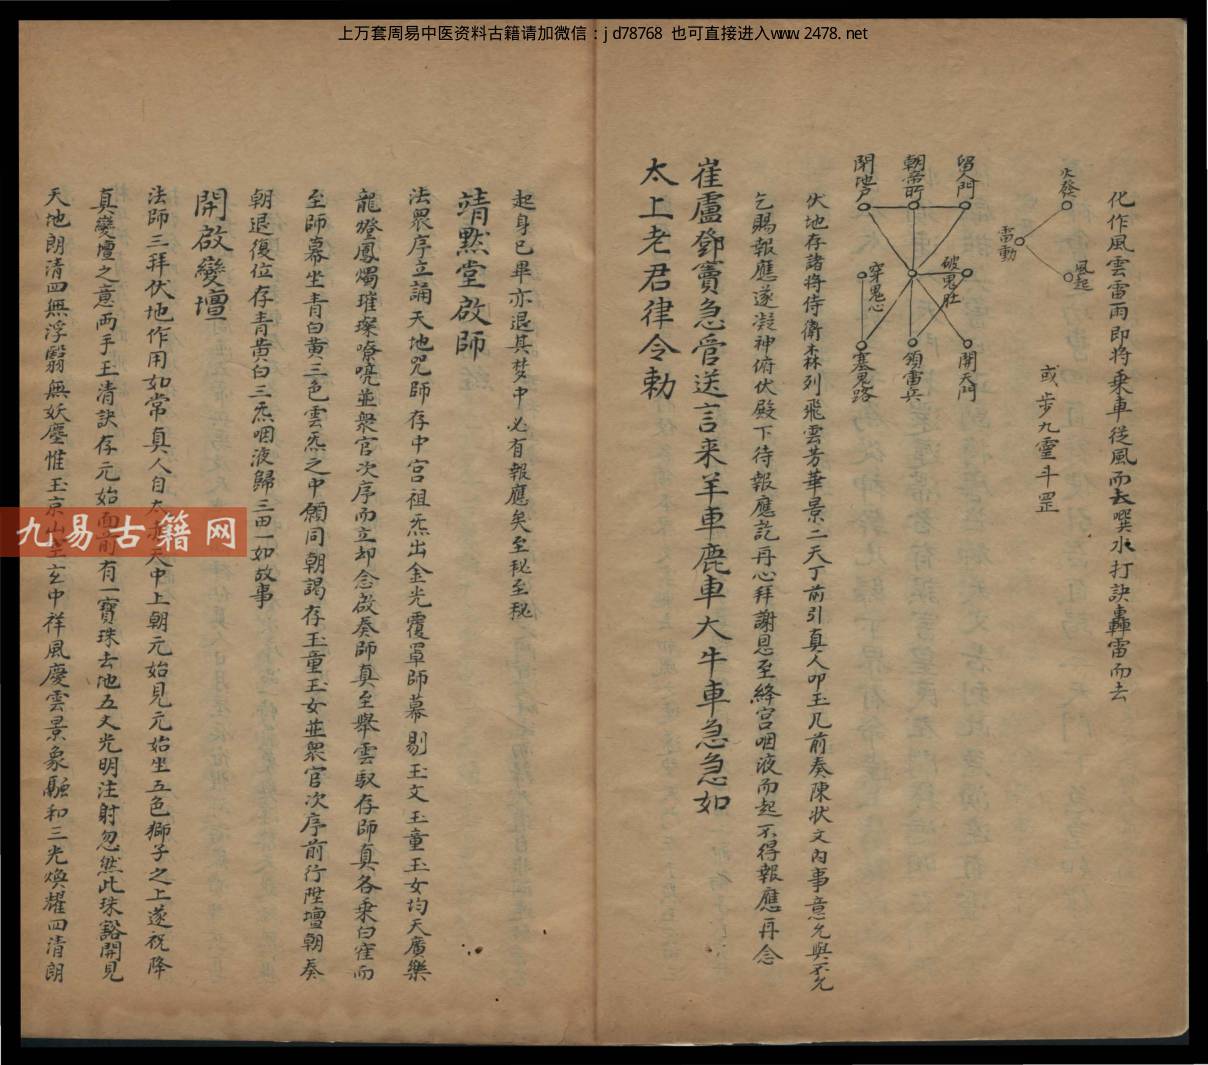 上万套周易中医资料古籍请加微信：jd78768 也可直接进入www.2478.net
化作風雲雷雨即将乘車從風而去噀水打訣轟雷而去
火發
雷動
風起
或步九靈斗罡
留人門
朝帝所
閉地戶
破鬼肚
穿鬼心
開天門
領雷兵
塞鬼路
伏地存諸将侍衛森列飛雲芳華景二天丁前引真人叩玉几前奏陳状文內事意允與不允
乞賜報應遂凝神俯伏殿下待報應訖再心拜謝恩至絳宮咽液而起不得報應再念
崔盧鄧竇急管送言来羊車鹿車大牛車急急如
太上老君律令勅
起身已畢亦退其梦中必有報應矣至秘至秘
靖默堂啟師
法眾序立誦天地咒師存中宮祖炁出金光覆罩師幕剔玉文玉童玉女均天廣樂
龍燈鳳燭璀璨嘹喨並衆官次序而立却念啟奏師真至舉雲馭存師真各乘白隺而
至師幕坐青白黃三色雲炁之中願同朝謁存玉童玉女並衆官次序前行陞壇朝奏
朝退復位存青黃白三炁咽液歸三田一如故事
開啟變壇
法師三拜伏地作用如常真人自太赤天中上朝元始見元始坐五色獅子之上遂祝降
真變壇之意两手玉清訣存元始面前有一寶珠去地五丈光明注射忽然此珠豁開見
天地朗清四無浮翳無妖塵惟玉京山玄中祥風慶雲景象融和三光煥耀四清朗
九易古籍网